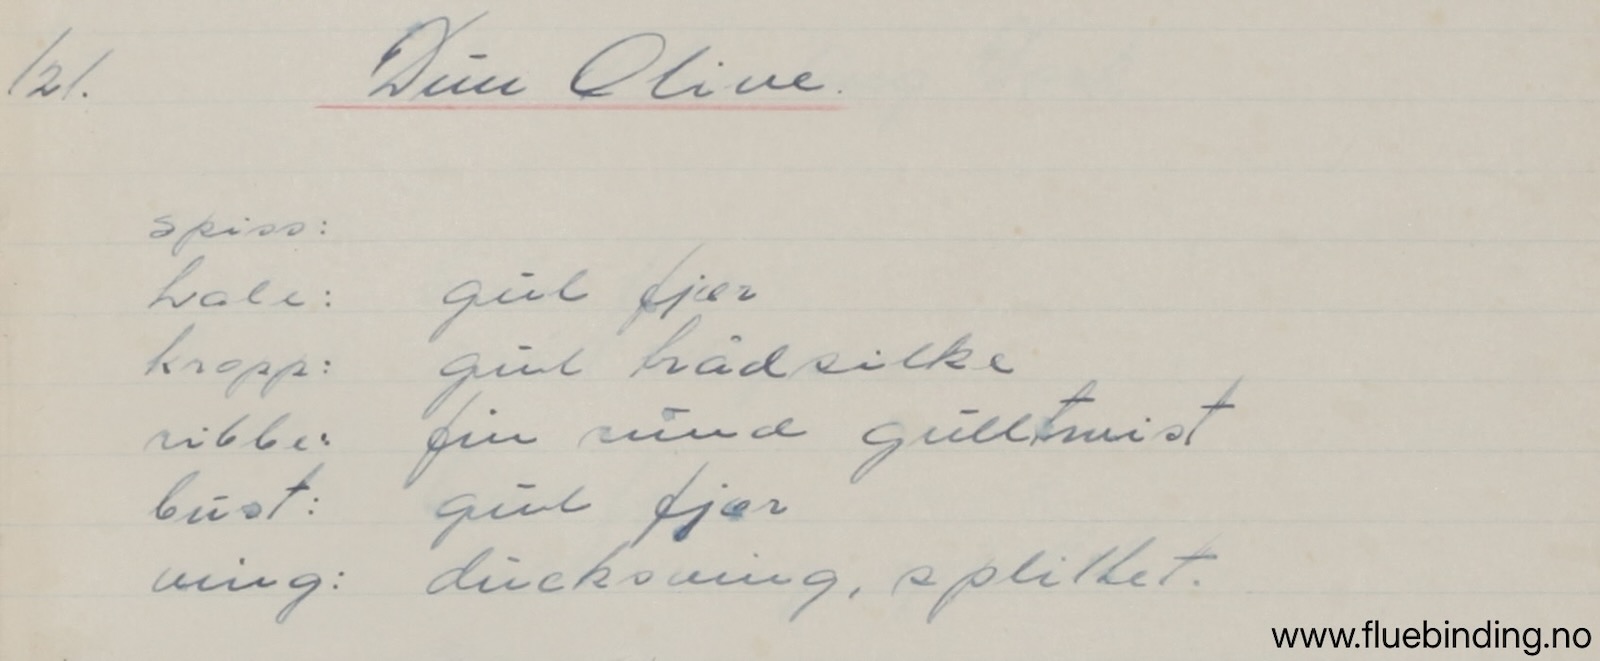 121. Dun Olive.
spiss:
hale: gul fjær
kropp: gul trådsilke
ribbe: fin rund gulltwist
bust: gul fjær
ving: ducksving, splittet.
www.fluebinding.no